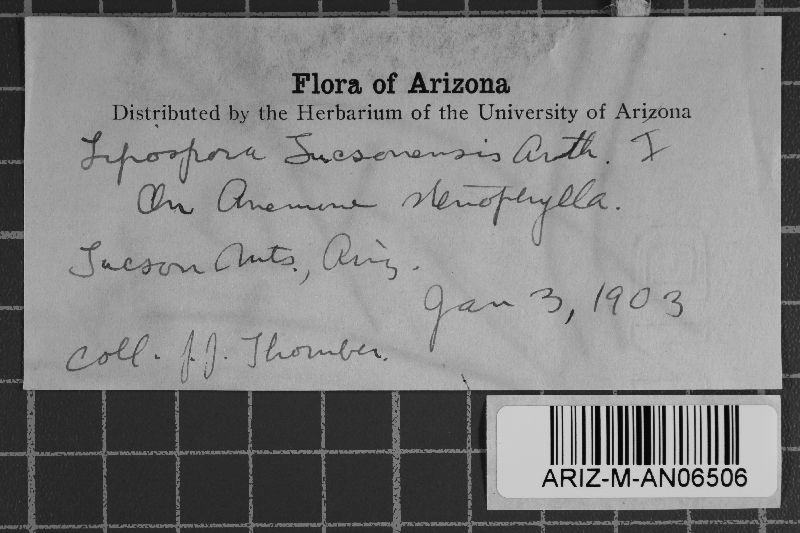 Flora of Arizona
Distributed by the Herbarium of the University of Arizona
Lipospora Tucsonensis Arth. I
On Anemone stenophylla.
Tucson Mts., Ariz.
Jan 3, 1903
Coll. J.J. Thornber.
ARIZ-M-AN06506